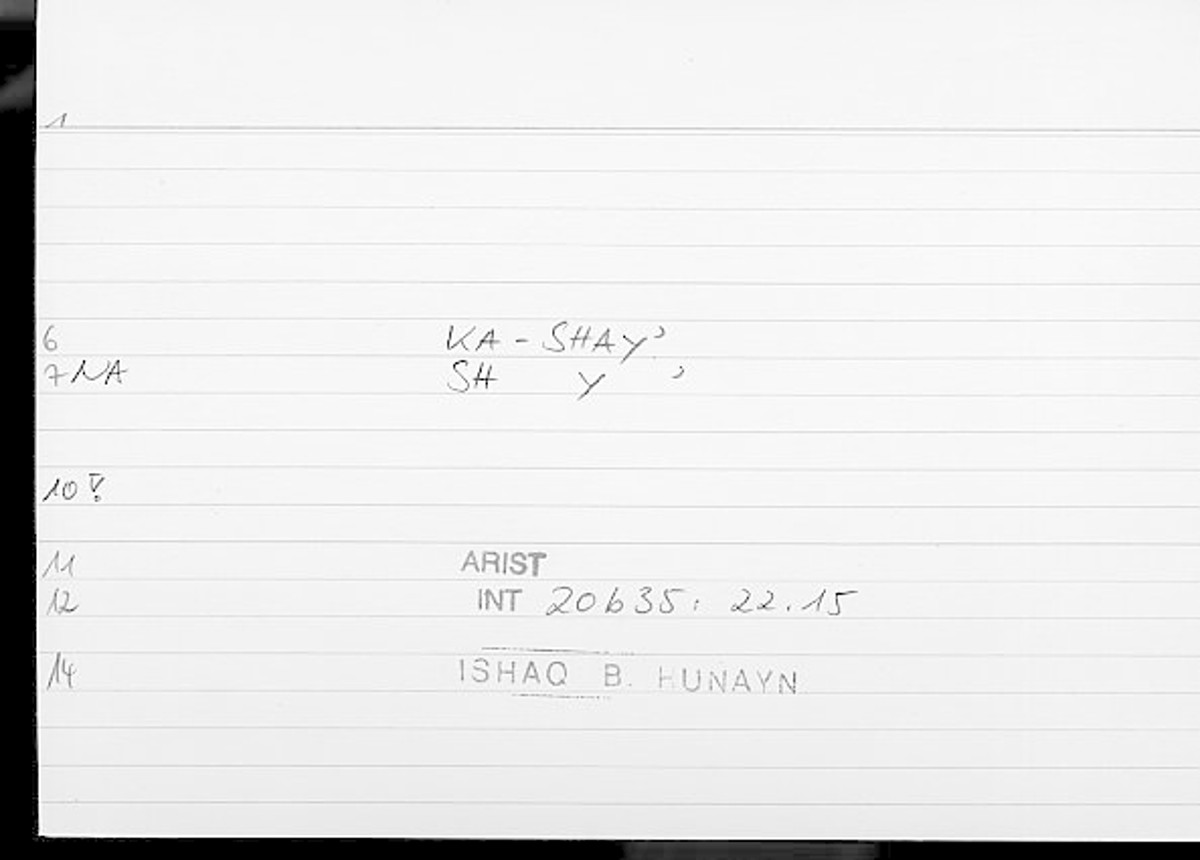 1
6 KA - SHAY'
7 NA SH Y '
10
11 ARIST
12 INT 20b35: 22.15
14 ISHAQ B. HUNAYN